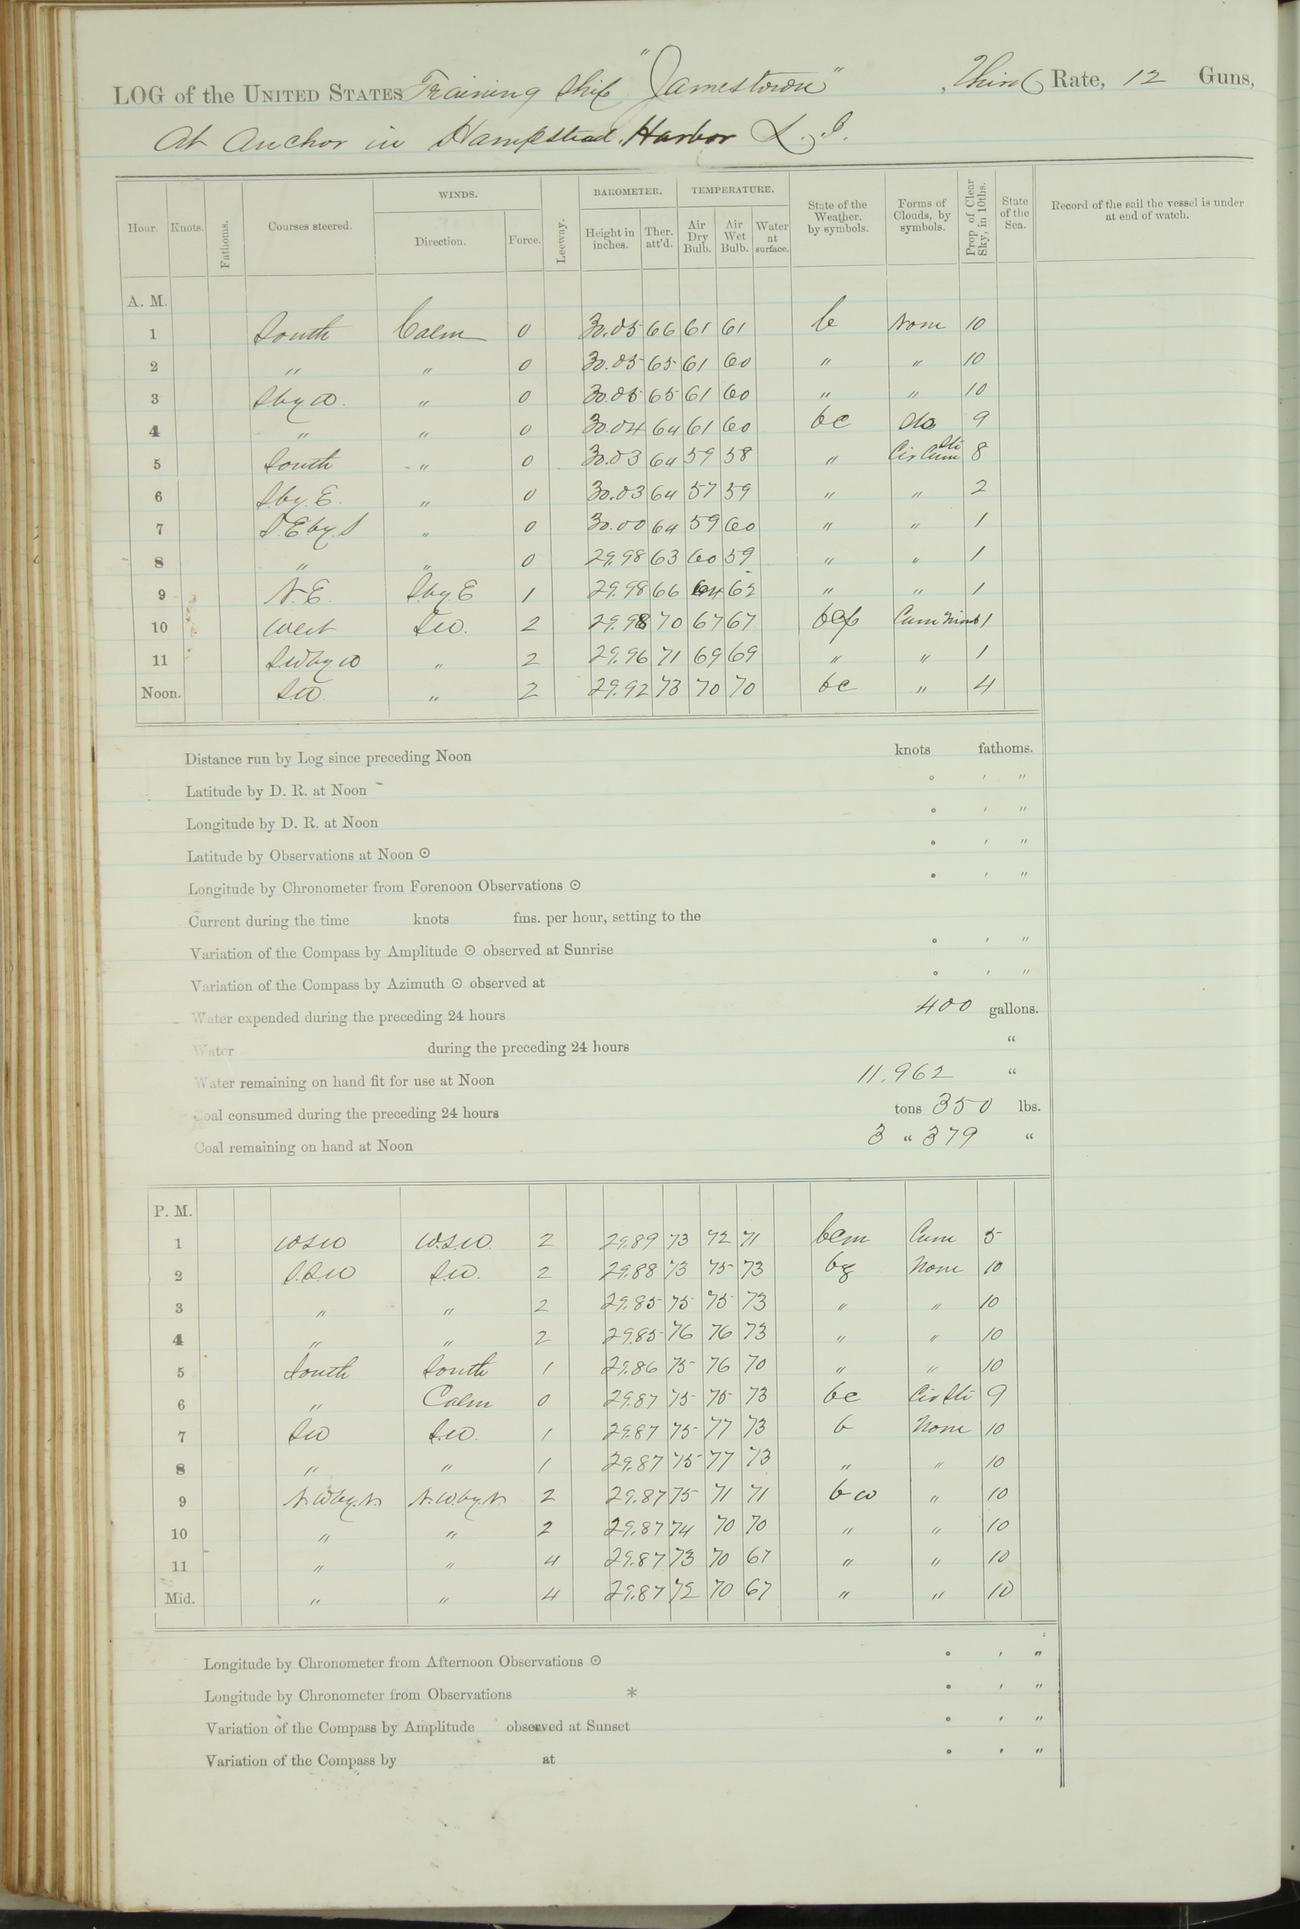 LOG of the UNITED STATES Training Ship "Jamestown", Third Rate, 12 Guns,
At Anchor in Hampstead Harbor L. I.
Hour. Knots. Fathoms. Courses steered. WINDS. Direction. Force. Leeway. BAROMETER. Height in inches. Ther. att'd. TEMPERATURE. Air Dry Bulb. Air Wet Bulb. Water at surface. State of the Weather, by symbols. Forms of Clouds, by symbols. Prop of Clear Sky, in 10ths. State of the Sea. Record of the sail the vessel is under at end of watch.
A. M.
1 South Calm 0 30.05 66 61 61 b None 10
2 " " 0 30.05 65 61 60 " " 10
3 S by W. " 0 30.05 65 61 60 " " 10
4 " " 0 30.04 64 61 60 bc 9
5 South " 0 30.03 64 59 58 " Cir Cum Str 8
6 S by E. " 0 30.03 64 57 59 " " 2
7 S.E by S " 0 30.00 64 59 60 " " 1
8 " " 0 29.98 63 60 59 " " 1
9 N.E. S by E 1 29.98 66 64 62 " " 1
10 West SW. 2 29.98 70 67 67 Cum Nimb 1
11 SW by W " 2 29.96 71 69 69 " " 1
Noon. SW. " 2 29.92 73 70 70 bc " 4
Distance run by Log since preceding Noon knots fathoms.
Latitude by D. R. at Noon ° ' "
Longitude by D. R. at Noon ° ' "
Latitude by Observations at Noon ☉ ° ' "
Longitude by Chronometer from Forenoon Observations ☉ ° ' "
Current during the time knots fms. per hour, setting to the
Variation of the Compass by Amplitude ☉ observed at Sunrise ° ' "
Variation of the Compass by Azimuth ☉ observed at ° ' "
Water expended during the preceding 24 hours 400 gallons.
Water during the preceding 24 hours "
Water remaining on hand fit for use at Noon 11.962 "
Coal consumed during the preceding 24 hours tons 350 lbs.
Coal remaining on hand at Noon 3 " 379 "
P. M.
1 WSW W.S.W. 2 29.89 73 72 71 bcm Cum 5
2 S.S.W SW. 2 29.88 73 75 73 None 10
3 " " 2 29.85 75 75 73 " " 10
4 " " 2 29.85 76 76 73 " " 10
5 South South 1 29.86 75 76 70 " " 10
6 " Calm 0 29.87 75 75 73 bc Cir Str 9
7 SW S.W. 1 29.87 75 77 73 b None 10
8 " " 1 29.87 75 77 73 " " 10
9 N.W by N N.W. by N 2 29.87 75 71 71 b w " 10
10 " " 2 29.87 74 70 70 " " 10
11 " " 4 29.87 73 70 67 " " 10
Mid. " " 4 29.87 72 70 67 " " 10
Longitude by Chronometer from Afternoon Observations ☉ ° ' "
Longitude by Chronometer from Observations * ° ' "
Variation of the Compass by Amplitude observed at Sunset ° ' "
Variation of the Compass by at ° ' "